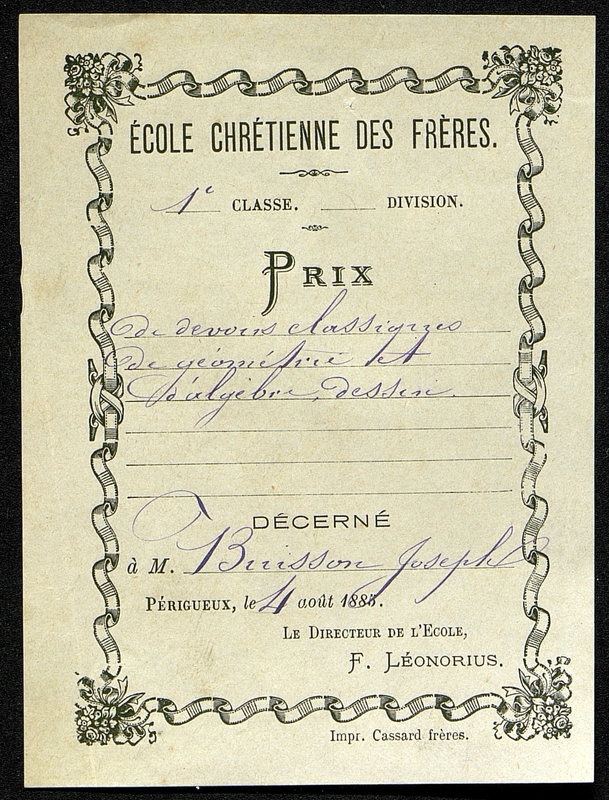 ÉCOLE CHRÉTIENNE DES FRÈRES.
1e CLASSE. DIVISION.
PRIX
de devoirs classiques
de géométrie et
d'algèbre, dessin.
DÉCERNÉ
à M. Buisson Joseph
PÉRIGUEUX, le 4 août 1885.
LE DIRECTEUR DE L'ECOLE,
F. LÉONORIUS.
Impr. Cassard frères.